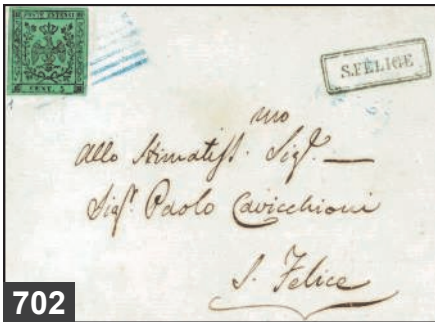 POSTE ESTENSI
CENT. 5
S. FELICE
mo
Allo Stimatiss. Sigr.
Sigr. Paolo Cavicchioni
S. Felice
702